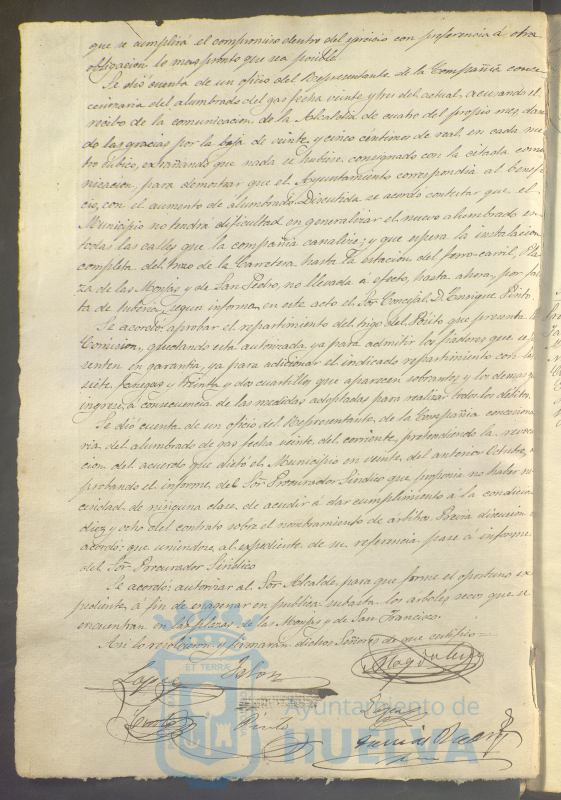 que se cumplirá el compromiso dentro del ejercicio con preferencia á otra
obligacion lo mas pronto que sea posible.
Se dió cuenta de un oficio del Representante de la Compañia conce
cionaria del alumbrado del gas fecha veinte y tres del actual, acusando el
recibo de la comunicacion de la Alcaldia de cuatro del propio mes, dan
do las gracias por la baja de veinte y cinco centimos de real, en cada me
tro cúbico, extrañando que nada se hubiere consignado con la citada comu
nicacion, para demostrar que el Ayuntamiento correspondia al benefi
cio, con el aumento de alumbrado. Discutida se acordó contestar que el
Municipio no tendrá dificultad en generalizar el nuevo alumbrado en
todas las calles que la compañia canalize; y que espera la instalacion
completa del trozo de la Carretera hasta la estacion del ferro-carril, Pla
za de las Monjas y de San Pedro, no llevada á efecto, hasta ahora, por fal
ta de tuberia, segun informa en este acto el Sor. Concejal D. Enrique Pinto.
Se acordó aprobar el repartimiento del trigo del Pósito que presenta la
Comision, quedando esta autorizada, ya para admitir los fiadores que se pre
senten en garantia, ya para adicionar el indicado repartimiento con las
siete fanegas y treinta y dos cuartillos que aparecen sobrantes y los demas que
ingrese, á consecuencia de las medidas adoptadas para realizar todos los débitos.
Se dió cuenta de un oficio del Representante de la Compañia concesiona
ria del alumbrado de gas fecha veinte del corriente, pretendiendo la revoca
cion del acuerdo que dictó el Municipio en veinte del anterior Octubre, a
probando el informe del Sor. Procurador Sindico que proponia no haber ne
cesidad de ninguna clase, de acudir á dar cumplimiento á la condicion
diez y ocho del contrato sobre el nombramiento de árbitros. Previa discusion se
acordó: que uniendose al expediente de su referencia pase á informe
del Sor. Procurador Sindico
Se acordó autorizar al Sor. Alcalde, para que forme el oportuno ex
pediente á fin de enagenar en publica subasta los arboles secos que se
encuentran en las plazas de las Monjas y de San Francisco.
Asi lo resolvieron y firmaran dichos Señores de que certifico=
Lopez
Pinto
Garcia
ET TERRÆ
Ayuntamiento de
HUELVA